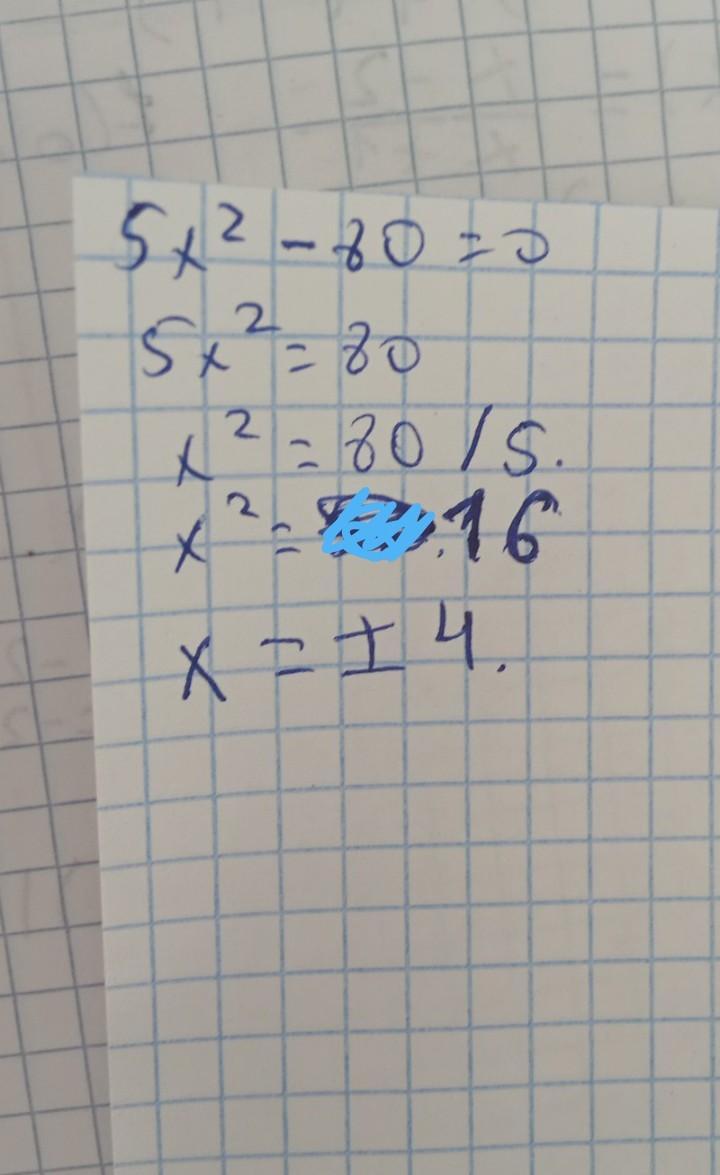 5x² - 80 = 0
5x² = 80
x² = 80 / 5.
x² = 16
x = ± 4.